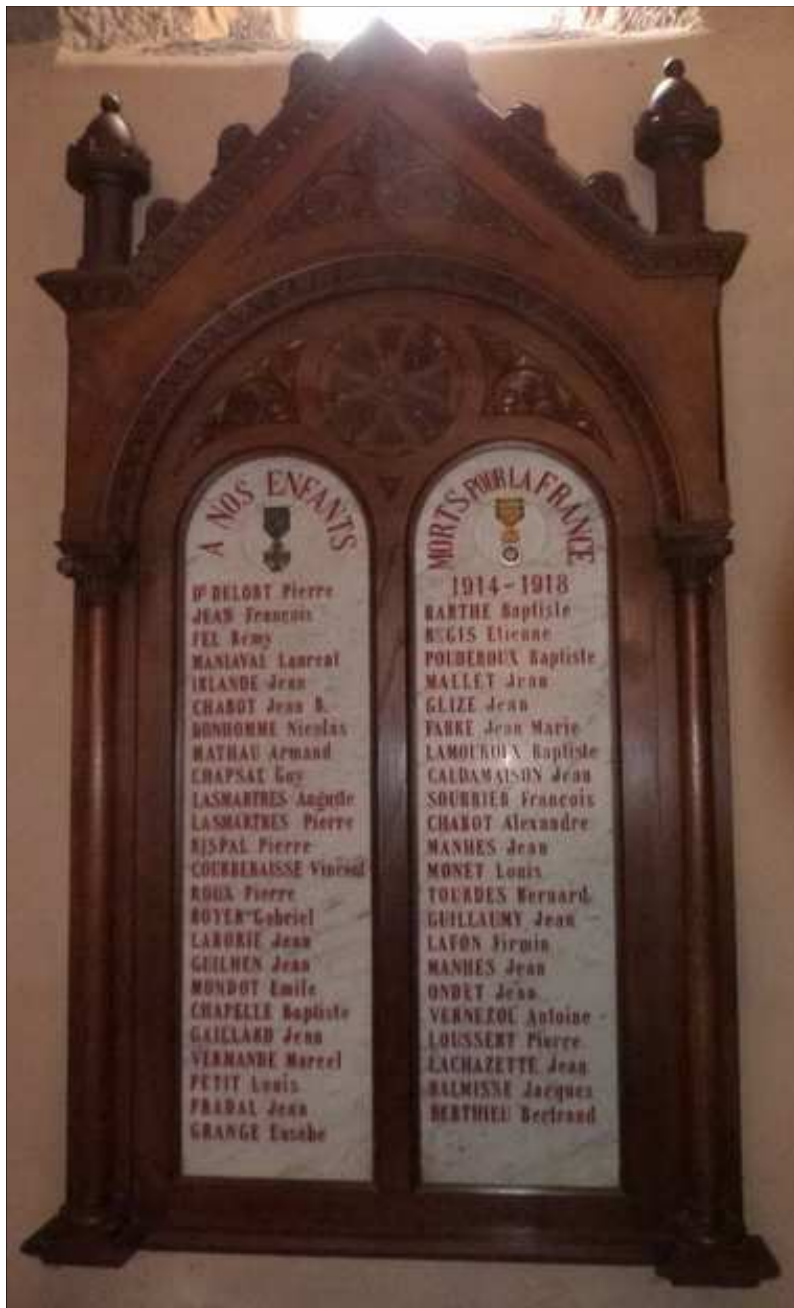 A NOS ENFANTS
Dr DELORT Pierre
JEAN François
FEL Remy
MANIAVAL Laurent
IRLANDE Jean
CHABOT Jean B.
BONHOMME Nicolas
MATHAU Armand
CHAPSAL Guy
LASMARTRES Auguste
LASMARTRES Pierre
RISPAL Pierre
COURBEBAISSE Vincent
ROUX Pierre
BOYER Gabriel
LABORIE Jean
GUILHEN Jean
MONDOT Emile
CHAPELLE Baptiste
GAILLARD Jean
VERMANDE Marcel
PETIT Louis
PRADAL Jean
GRANGE Eusèbe
MORTS POUR LA FRANCE
1914-1918
BARTHE Baptiste
REGIS Etienne
POUDEROUX Baptiste
MALLET Jean
GLIZE Jean
FABRE Jean Marie
LAMOUROUX Baptiste
CALDAMAISON Jean
SOUBRIER François
CHABOT Alexandre
MANHES Jean
MONET Louis
TOURDES Bernard
GUILLAUMY Jean
LAFON Firmin
MANHES Jean
ONDET Jean
VERNEZOL Antoine
LOUSSERT Pierre
LACHAZETTE Jean
BALMISSE Jacques
BERTHIEU Bertrand